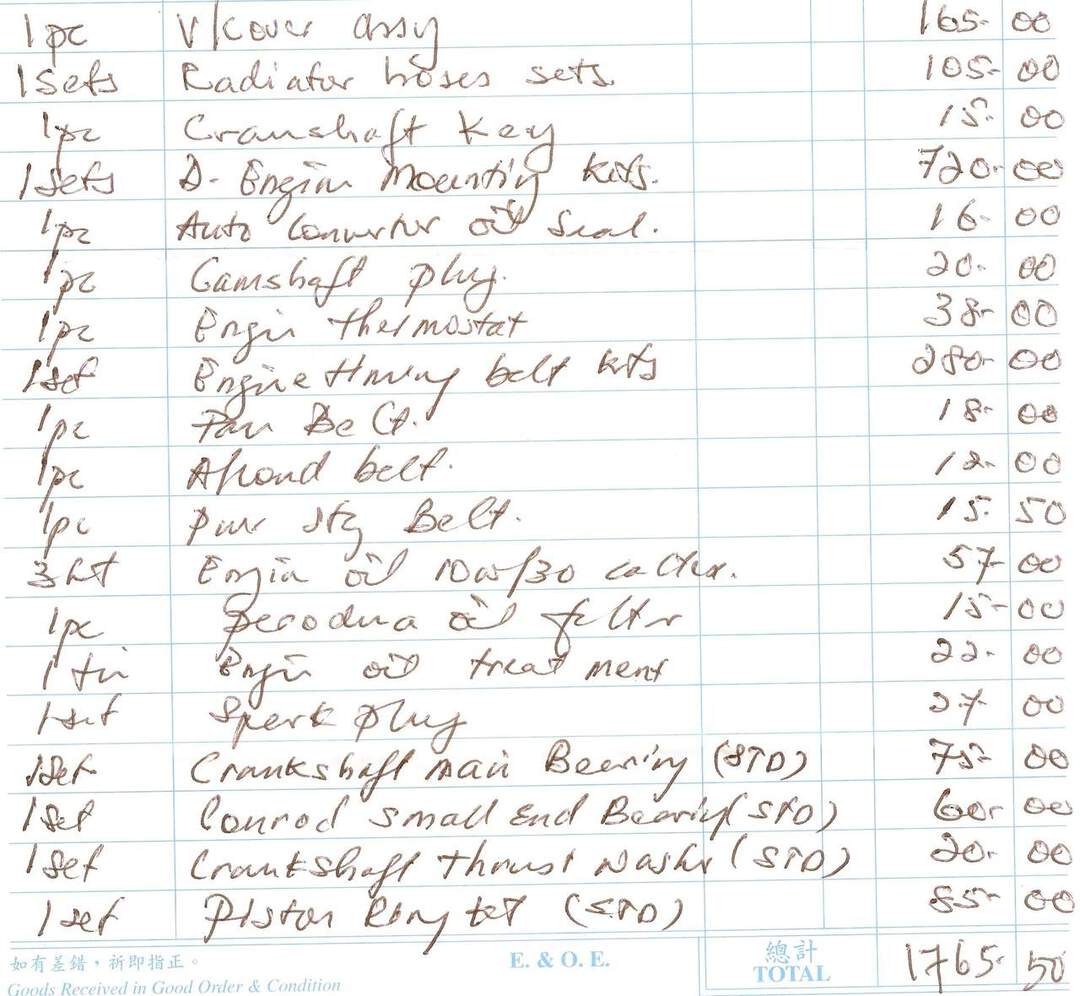 1pc V/cover assy 165.00
1sets Radiator hoses sets. 105.00
1pc Cranshaft Key 15.00
1sets D. Engin Mounting kits. 720.00
1pc Auto Converter oil Seal. 16.00
1pc Camshaft plug. 20.00
1pc Engin thermostat 38.00
1set Engine timing belt kits 280.00
1pc Fan Belt. 18.00
1pc belt. 12.00
1pc Pwr Stg Belt. 15.50
3 Engin oil 10w/30 57.00
1pc oil filter 15.00
1 tin Engin oil treatment 22.00
1set Spark plug 27.00
1set Crankshaft main Bearing (STD) 75.00
1set Conrod small End Bearing (STD) 60.00
1set Crankshaft thrust washr (STD) 20.00
1set Piston Ring (STD) 85.00
如有差錯，祈即指正。 E. & O. E. 總計
Goods Received in Good Order & Condition TOTAL 1765.50